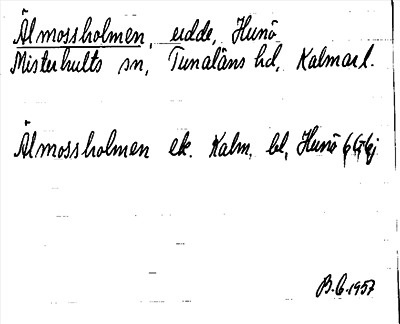 Älmossholmen, udde, Hunö
Misterhults sn, Tunaläns hd, Kalmar l.
Älmossholmen ek. Kalm. bl, Hunö 6G6j
B.C. 1957